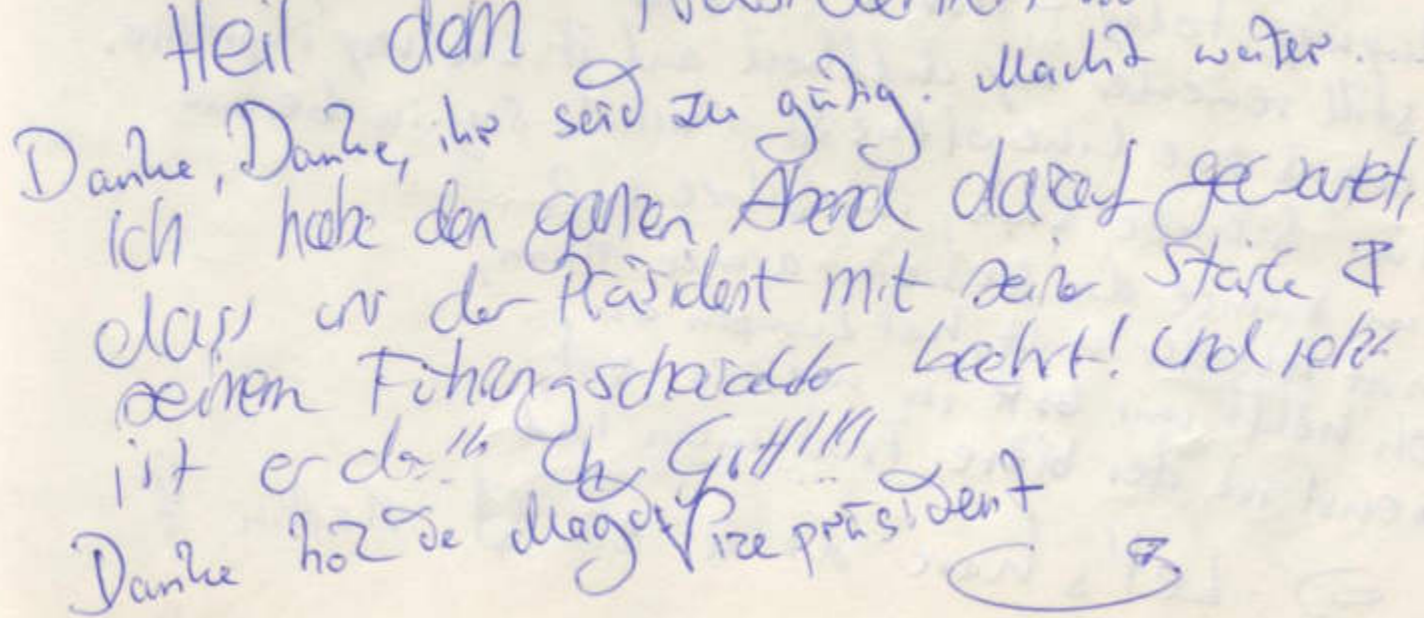 Heil dem
Danke, Danke, ihr seid zu gütig. Macht weiter.
ich habe den ganzen Abend darauf gewartet,
dass der Präsident mit seiner Stärke &
seinem Führungscharakter beehrt! Und jetzt
ist er da!!! Oh Gott!!!!
Danke holde Magd Vizepräsident